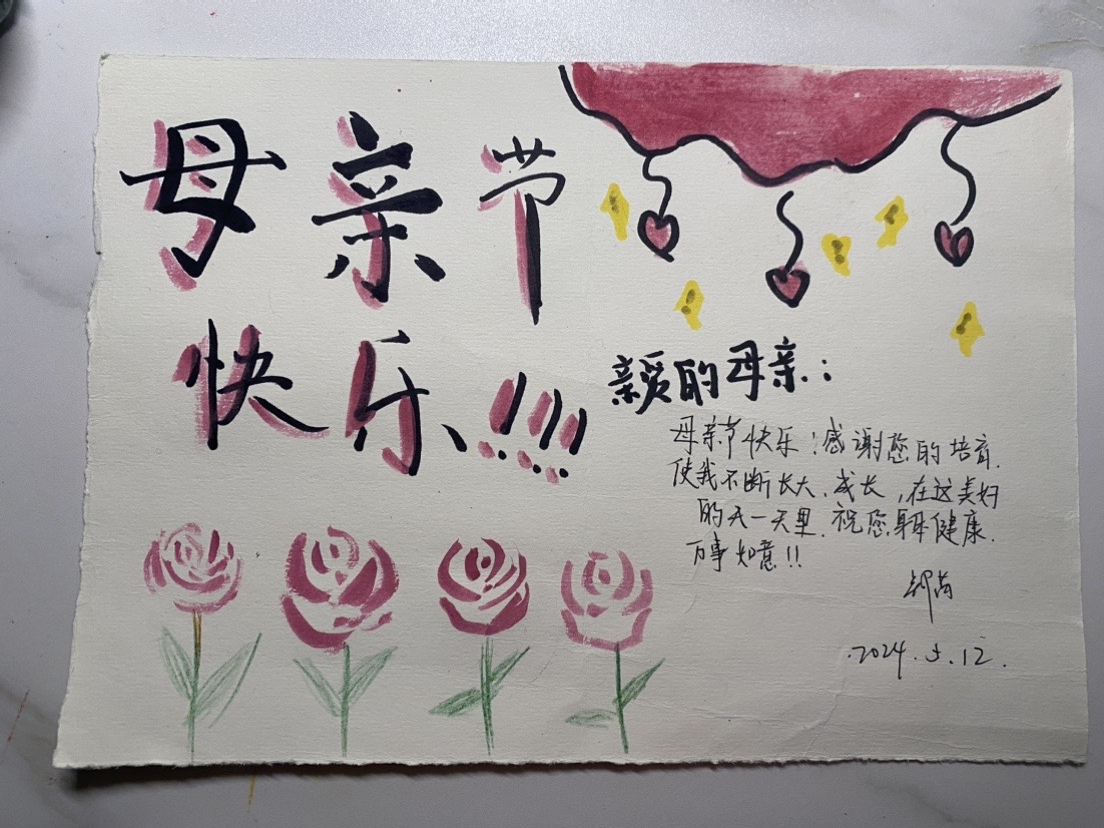 母亲节
快乐!!!
亲爱的母亲:
母亲节快乐!感谢您的培育.
使我不断长大、成长,在这美好
的天一天里.祝您身体健康.
万事如意!!
2024.5.12.